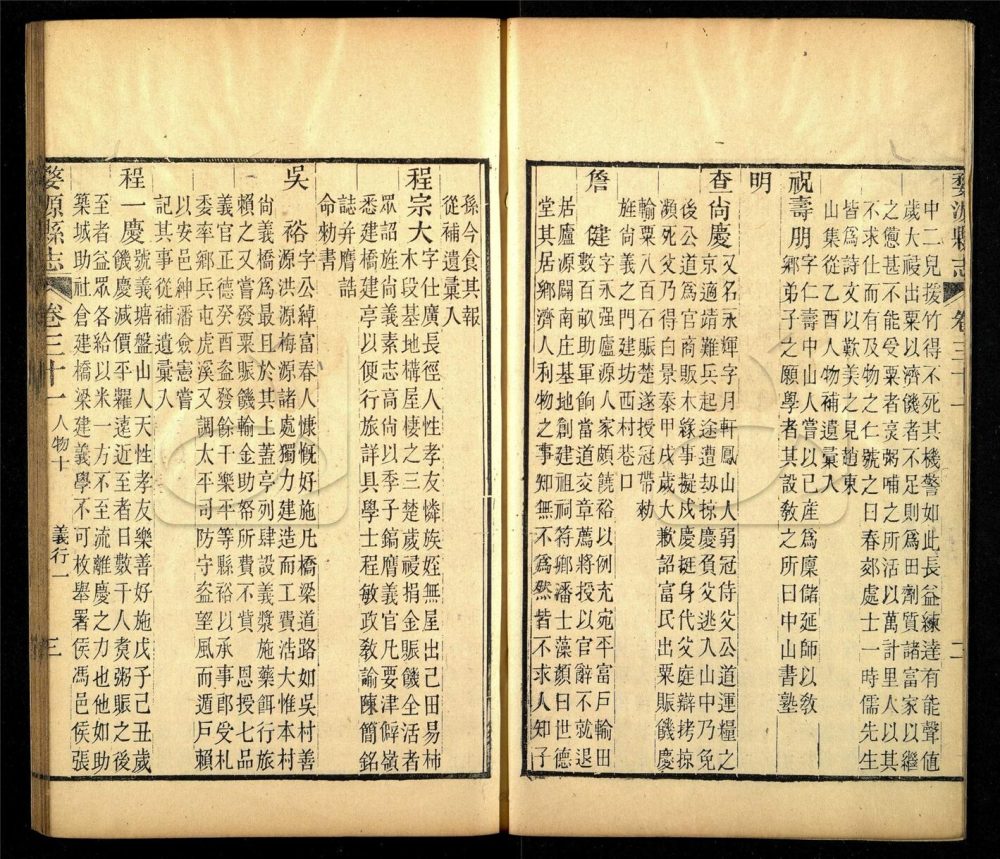 婺源縣志 卷三十一 二
中二兒援竹得不死其機警如此長益練達有能聲值
歲大祲出粟以濟饑者不足則爲田劑質諸富家以繼
之憊甚不能受粟者烹粥哺之所活以萬計里人以其
不求仕而有及物之仁號之曰春郊處士一時儒先生
皆爲詩文以歎美之見趙東
山集從乙酉人物補遺彙入
祝壽朋字仁壽中山人嘗以已產爲廩儲延師以敎
鄉弟子之願學者其設敎之所曰中山書塾
明
查尚慶又名永輝字月軒鳳山人弱冠侍父公道運糧之
京適靖難兵起途遭刧掠慶負父逃入山中乃免
後公道爲官商販木緣事擬戍慶挺身代父庭辯拷掠
瀕死父乃得白景泰甲戌歲大歉詔富民出粟賑饑慶
輸粟八百石賑楚遂授冠帶勅
旌尚義之門建坊西村巷口
詹健字永强廬源人家頗饒裕以例充宛平富戶輸田
數百畝助軍餉當道交章薦將授以官辭不就退
居廬源闢南庄基地創建祖祠符鄉潘士藻顏曰世德
堂其居鄉濟人利物之事知無不爲然皆不求人知子
孫今食其報
從補遺彙入
程宗大字仕廣長徑人性孝友憐族姪無屋出己田易柿
木段基地構屋棲之三楚歲祲捐金賑饑全活者
眾詔旌尚義素志高尚以季子鎬膺義官凡要津僻嶺
悉建橋建亭以便行旅詳具學士程敏政敎諭陳簡銘
誌并膺誥
命勅書
吳裕字公綽富春人慷慨好施凡橋梁道路如吳村善
源洪源梅源諸處獨力建造而工費浩大惟本村
尚義橋爲最且於其上蓋亭列肆設義漿施藥餌行旅
賴之又嘗發粟賑饑輸金助帑所費不貲恩授七品
義官正德癸酉盜發餘干樂平等縣裕以承事郎受札
委率鄉兵屯虎溪又調太平司防守盜望風而遁戶賴
以安邑紳潘僉憲嘗
記其事從補遺彙入
程一慶號義塘盤山人天性孝友樂善好施戊子己丑歲
饑慶減價平糶遠近至者日數千人煑粥賑之後
至者益眾各給以米一方不至流離慶之力也他如助
築城助社倉建橋梁建義學不可枚舉署侯馮邑侯張
婺源縣志 卷三十一 人物十 義行一 三